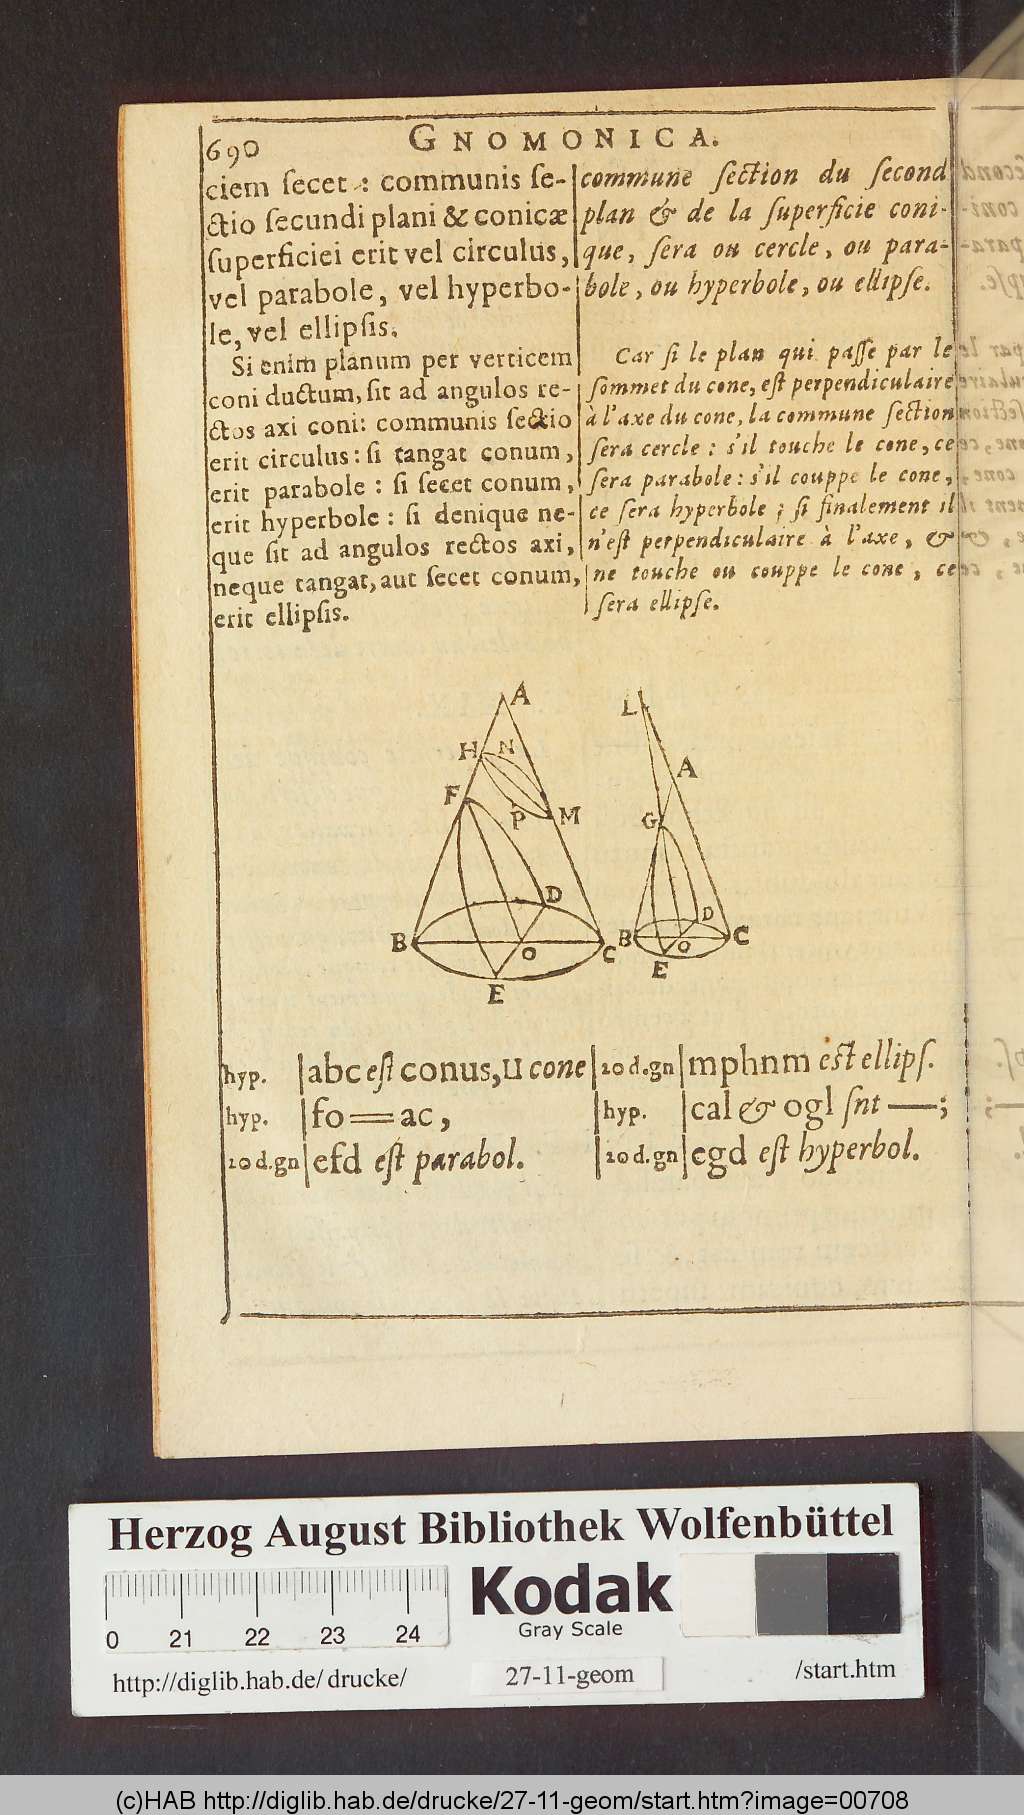 690 GNOMONICA.
ciem ſecet : communis ſe-
ctio ſecundi plani & conicæ
ſuperficiei erit vel circulus,
vel parabole, vel hyperbo-
le, vel ellipſis.
Si enim planum per verticem
coni ductum, ſit ad angulos re-
ctos axi coni: communis ſectio
erit circulus: ſi tangat conum,
erit parabole : ſi ſecet conum,
erit hyperbole : ſi denique ne-
que ſit ad angulos rectos axi,
neque tangat, aut ſecet conum,
erit ellipſis.
commune ſection du ſecond
plan & de la ſuperficie coni-
que, ſera ou cercle, ou para-
bole, ou hyperbole, ou ellipſe.
Car ſi le plan qui paſſe par le
ſommet du cone, eſt perpendiculaire
à l'axe du cone, la commune ſection
ſera cercle : s'il touche le cone, ce
ſera parabole: s'il couppe le cone,
ce ſera hyperbole ; ſi finalement il
n'eſt perpendiculaire à l'axe, &
ne touche ou couppe le cone, ce
ſera ellipſe.
A
H N
F
P M
D
B O C
E
L
A
G
D
B O C
E
hyp. |abc eſt conus, u cone
hyp. |fo = ac,
20 d.gn |efd eſt parabol.
20 d.gn |mphnm eſt ellipſ.
hyp. |cal & ogl ſnt —;
20 d.gn |egd eſt hyperbol.
Herzog August Bibliothek Wolfenbüttel
0 21 22 23 24
Kodak
Gray Scale
http://diglib.hab.de/drucke/ 27-11-geom /start.htm
(c)HAB http://diglib.hab.de/drucke/27-11-geom/start.htm?image=00708